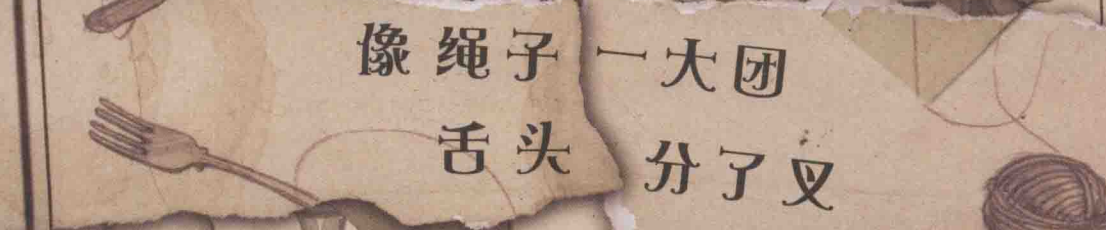 像绳子一大团
舌头 分了叉